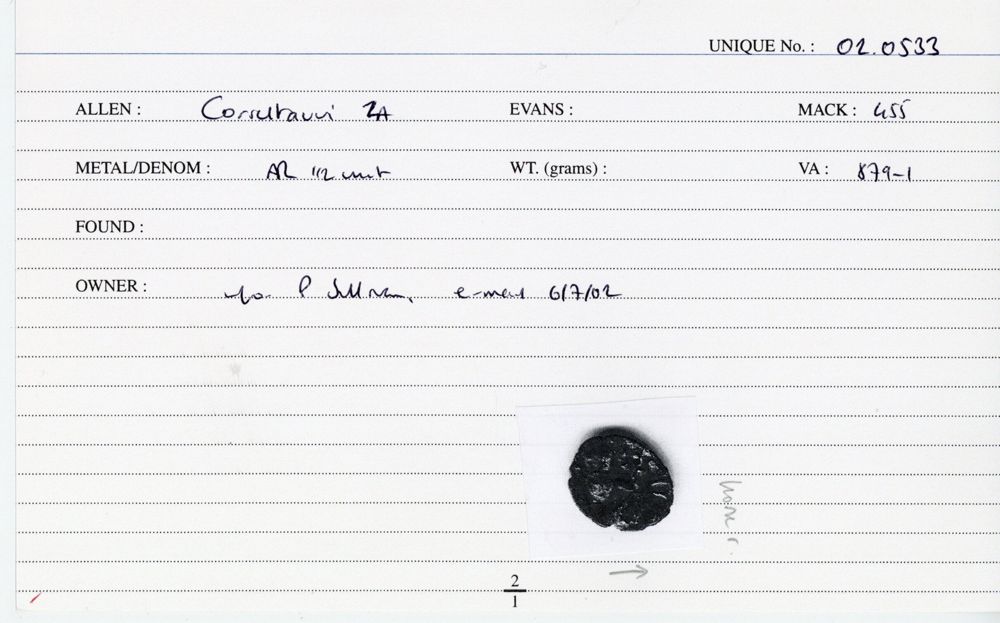 UNIQUE No. : 02.0533
ALLEN : Corieltauvi 2A EVANS : MACK : 455
METAL/DENOM : AR 1/2 unit WT. (grams) : VA : 879-1
FOUND :
OWNER : P e-mail 6/7/02
horse r.
2
1